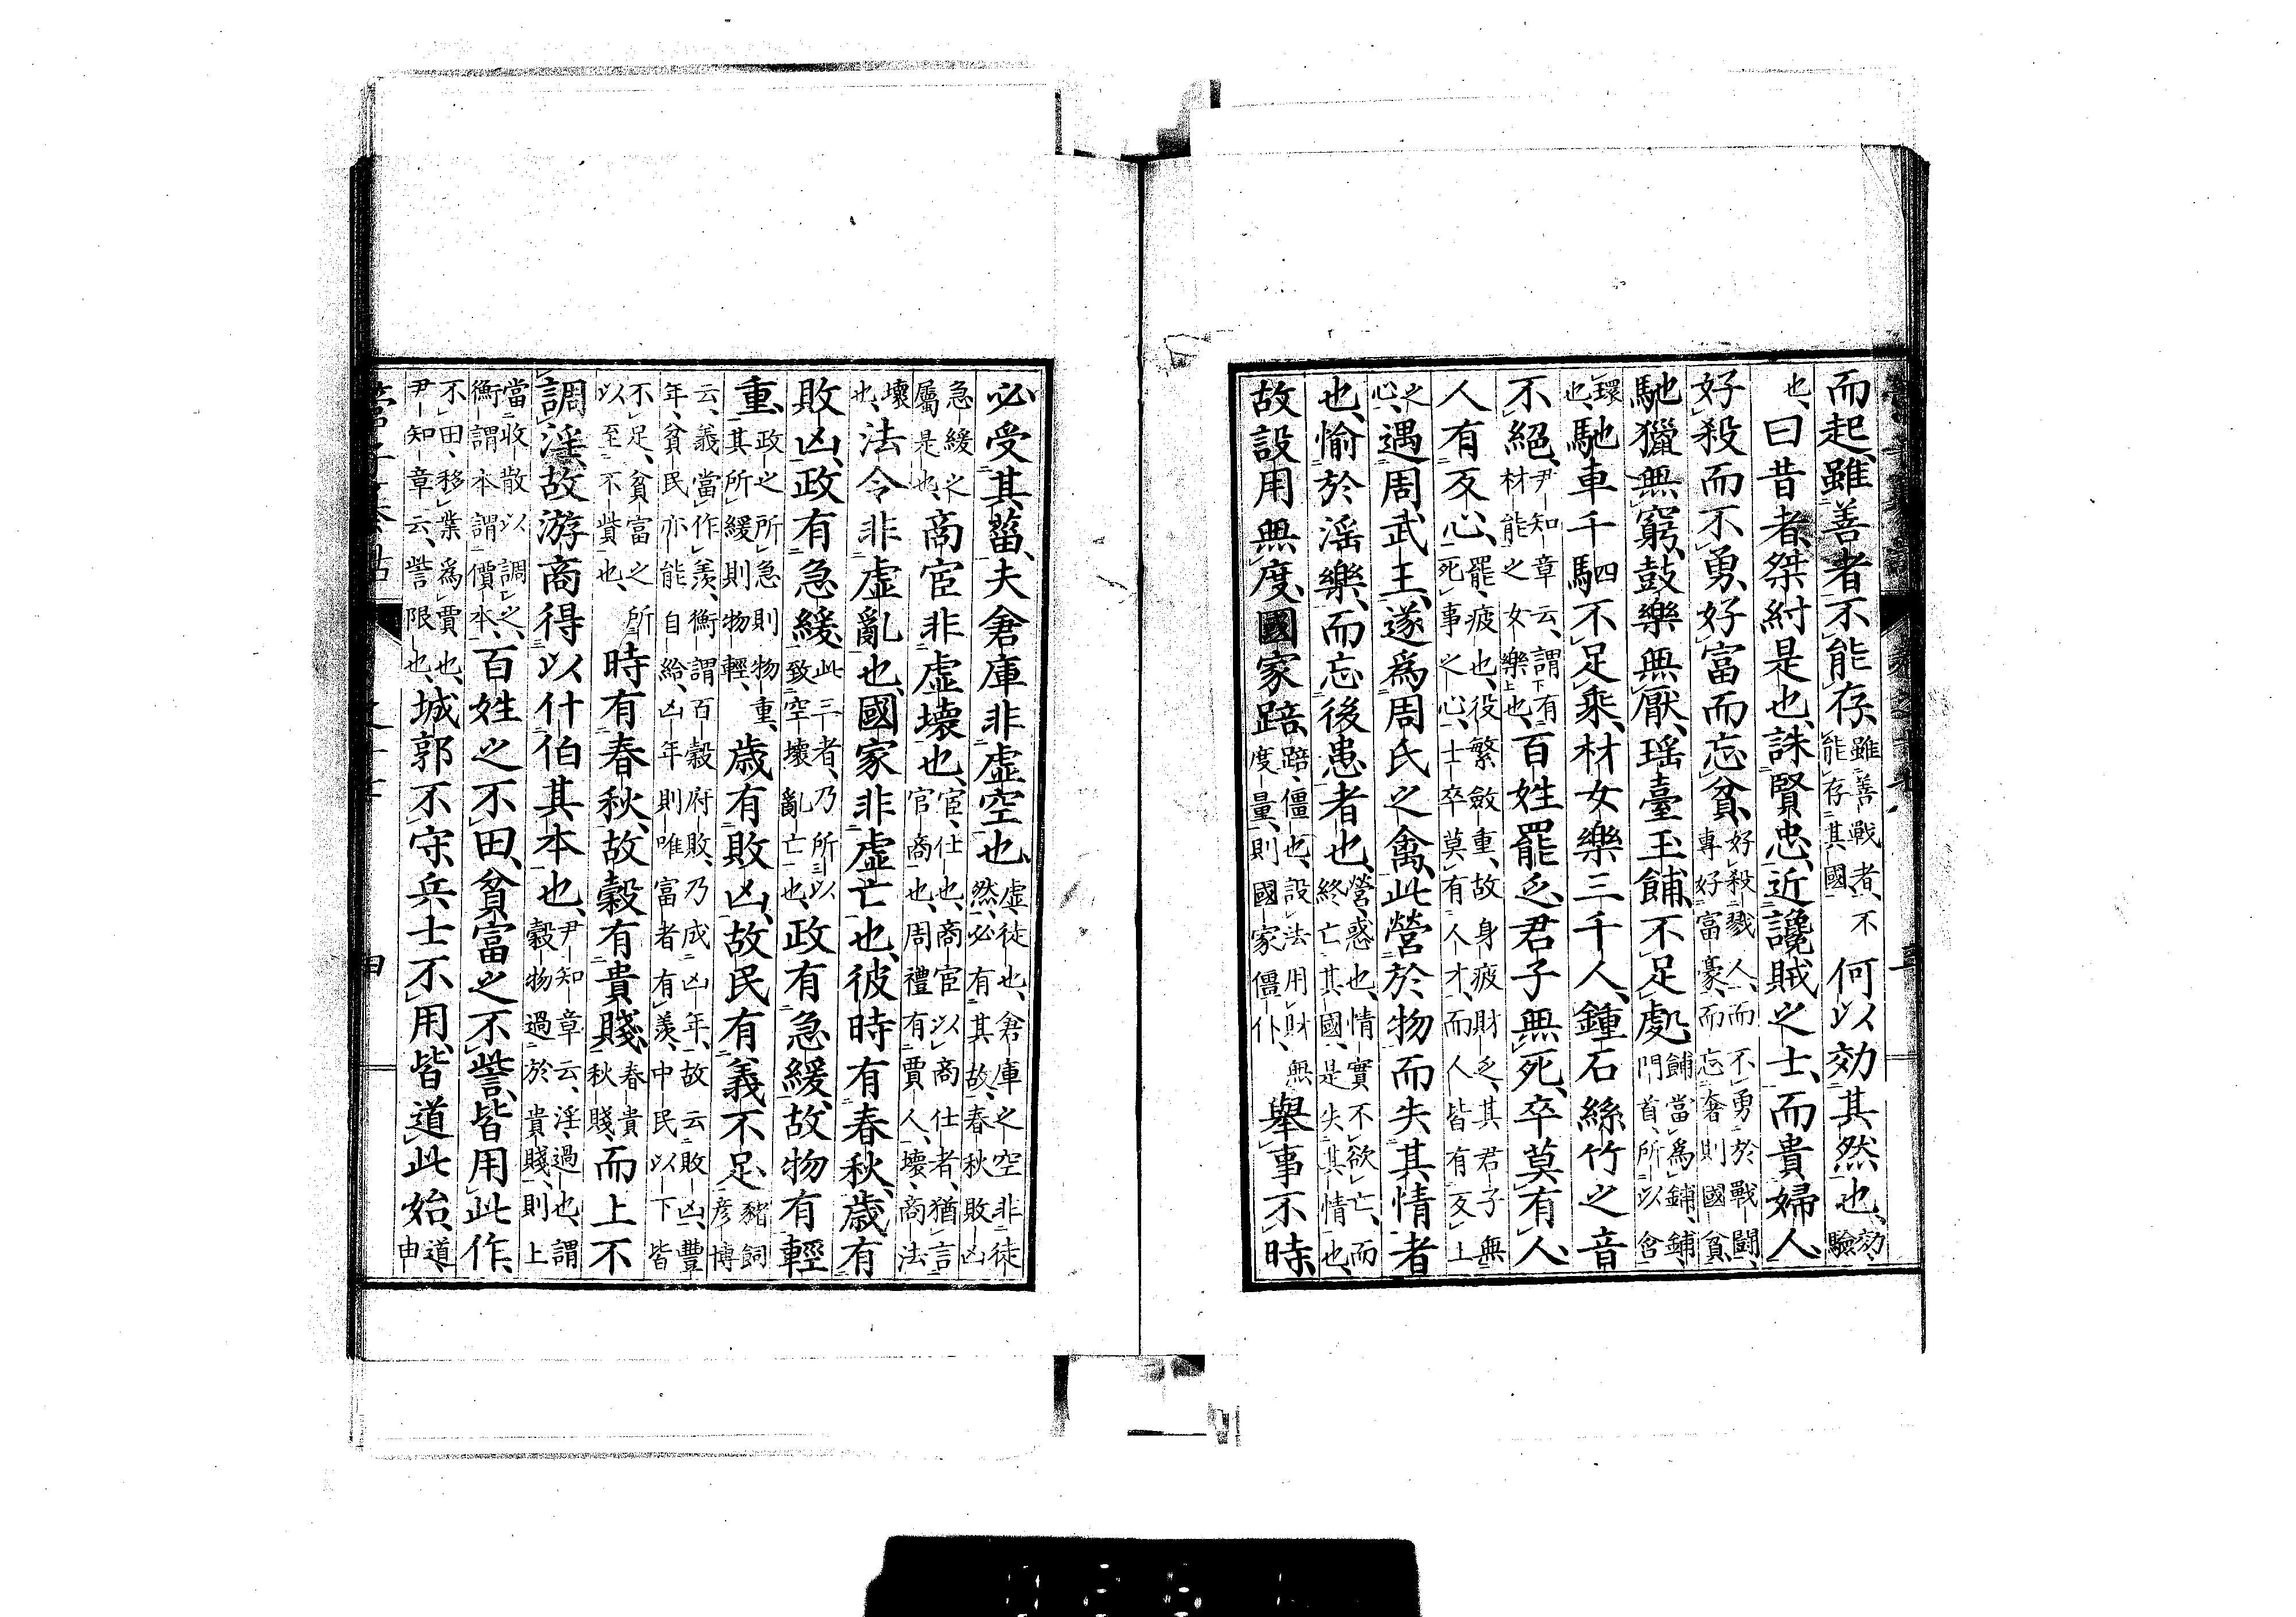 而起、雖善者不能存、雖善戰者、不能存其國、何以効其然也、効、驗
也、曰昔者桀紂是也、誅賢忠、近讒賊之士、而貴婦人、
好殺而不勇、好富而忘貧、好殺戮人、而不勇於戰鬪、專好富豪、而忘奢則國貧、
馳獵無窮、鼓樂無厭、瑶臺玉餔、不足處、餔當爲鋪、鋪、門首、所以含
環也、馳車千駟不足乘、材女樂三千人、鍾石絲竹之音
不絕、尹知章云、謂有材能之女樂也、百姓罷乏、君子無死、卒莫有人、
人有反心、罷、疲也、役繁斂重、故身疲財乏、其君子無死事之心、士卒莫有人才、而人皆有反上
之心、遇周武王、遂爲周氏之禽、此營於物而失其情者
也、愉於淫樂、而忘後患者也、營、惑也、情實不欲亡、而終亡其國、是失其情也、
故設用無度、國家踣、踣、僵也、設法用財無度量、則國家僵仆、舉事不時、
必受其菑、夫倉庫非虛空也、虛、徒也、倉庫之空非徒然、必有其故、春秋敗凶
急緩之屬是也、商宦非虛壞也、宦、仕也、商宦以商仕者、猶言官商也、周禮有賈人、壞、商法
壞也、法令非虛亂也、國家非虛亡也、彼時有春秋、歲有
敗凶、政有急緩、此三者、乃所以致空壞亂亡也、政有急緩、故物有輕
重、政之所急則物重、其所緩則物輕、歲有敗凶、故民有義不足、豬飼彥博
云、義當作羨、衡謂百穀府敗、乃成凶年、故云敗凶、豐年、貧民亦能自給、凶年則唯富者有羨、中民以下皆
不足、貧富之所以至不貲也、時有春秋、故穀有貴賤、春貴秋賤、而上不
調淫、故游商得以什伯其本也、尹知章云、淫、過也、謂穀物過於貴賤、則上
當收散以調之、衡謂本謂價本、百姓之不田、貧富之不訾、皆用此作、
不田、移業爲賈也、尹知章云、訾、限也、城郭不守、兵士不用、皆道此始、道、由